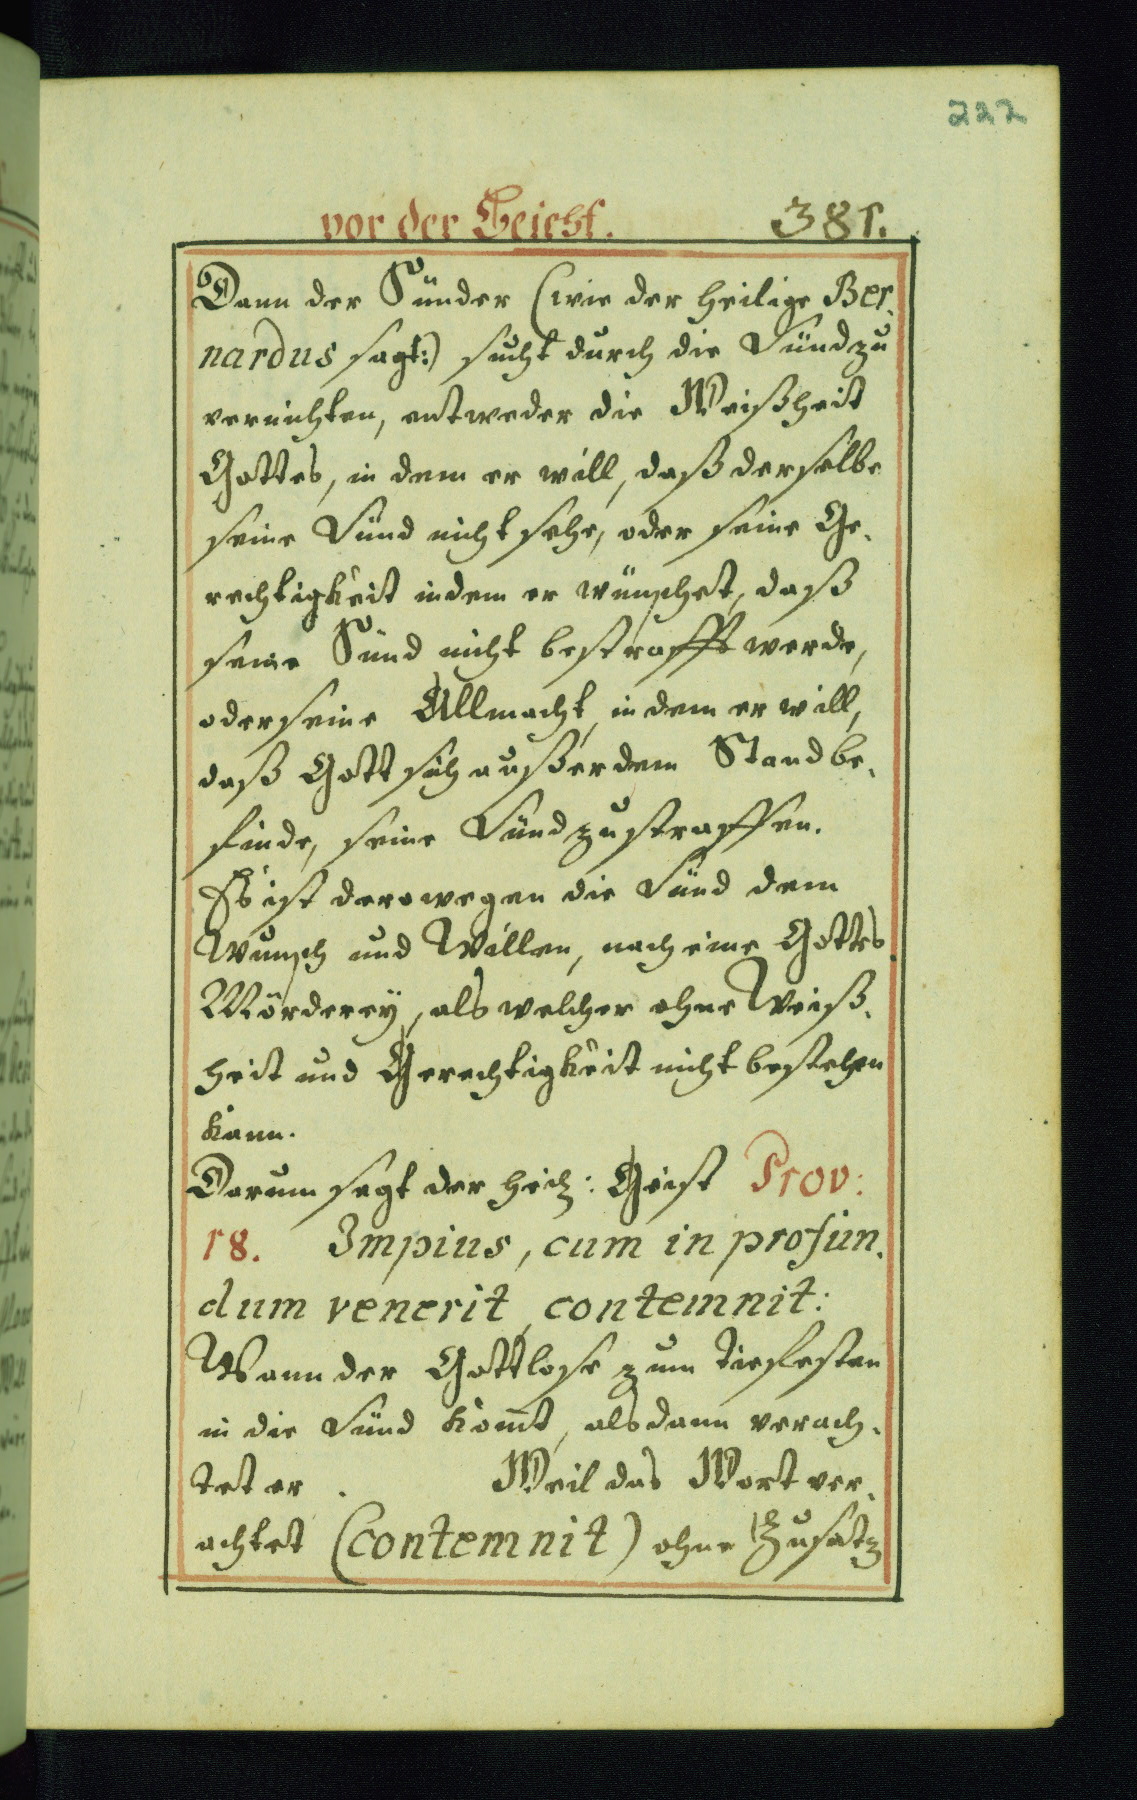 222
vor der Beicht. 381.
Dann der Sünder (wie der heilige Ber,
nardus sagt:) sucht durch die Sünd zu
vernichten, entweder die Weißheit
Gottes, in dem er will, daß derselbe
seine Sünd nicht sehe, oder seine Ge,
rechtigkeit indem er wünschet, daß
seine Sünd nicht bestrafft werde,
oder seine Allmacht, in dem er will,
daß Gott sich außer dem Stand be,
finde, seine Sünd zu straffen.
Es ist derowegen die Sünd dem
Wunsch und Willen, nach eine Gottes
Mörderey, als welcher ohne Weiß,
heit und Gerechtigkeit nicht bestehen
kann.
Darum sagt der heil: Geist Prov:
18. Impius, cum in profun,
dum venerit, contemnit:
Wann der Gottlose zum tiefesten
in die Sünd komt, alsdann verach,
tet er. Weil das Wort ver,
achtet (contemnit) ohne Zusatz